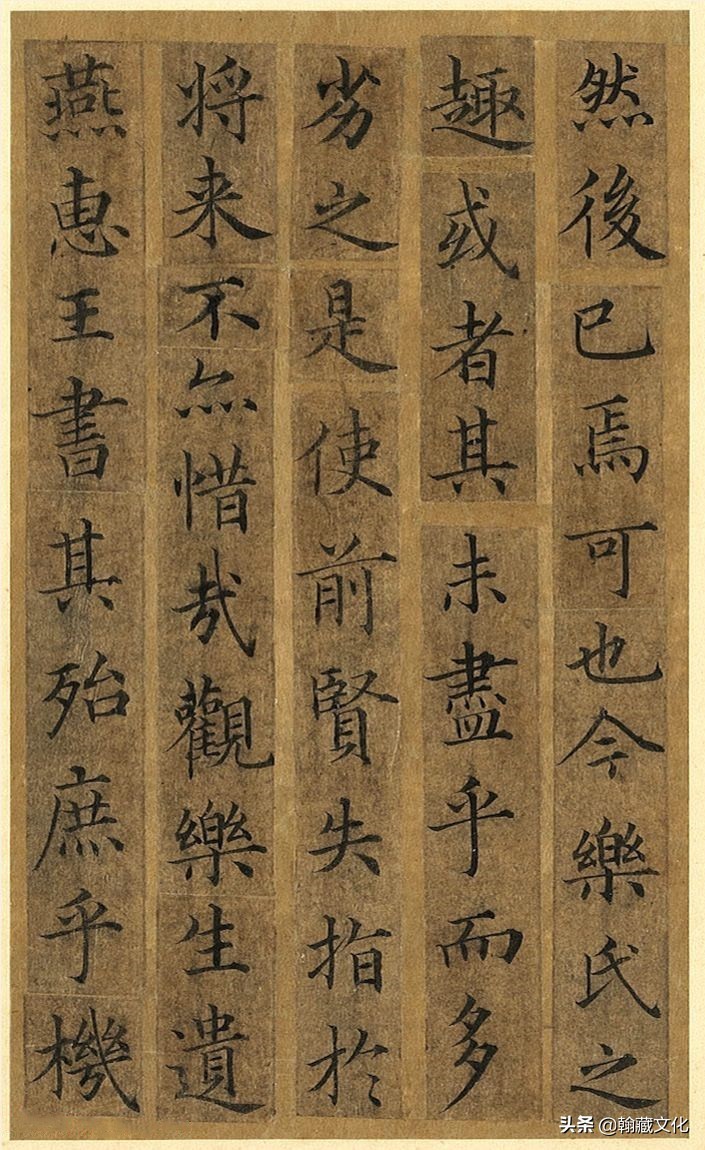 然後已焉可也今樂氏之
趣或者其未盡乎而多
劣之是使前賢失指於
将来不亦惜哉觀樂生遺
燕惠王書其殆庶乎機
头条 @翰藏文化